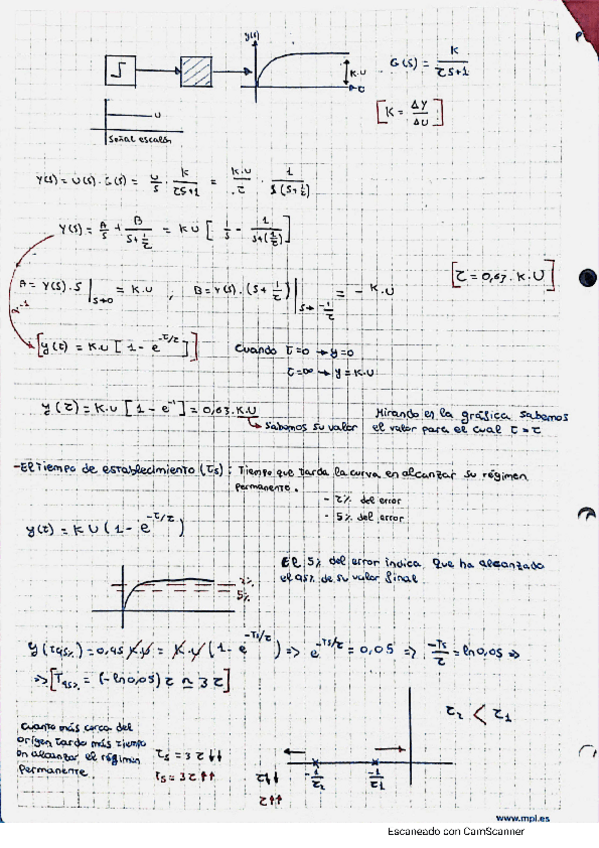 y(t)
K.U
t
G(s) = K / τs+1
[K = ΔY / ΔU]
U
Señal escalón
Y(s) = U(s) . G(s) = U/s . K/τs+1 = K.U/τ . 1/s(s+1/τ)
Y(s) = A/s + B/s+1/τ = KU [1/s - 1/s+(1/τ)]
[τ = 0,63 . K.U]
A = Y(s) . s |s→0 = K.U , B = Y(s) . (s + 1/τ) |s→-1/τ = - K.U
[y(t) = K.U [1 - e^-t/τ]] Cuando t=0 → y=0
t=∞ → y=K.U
y(τ) = K.U [1 - e^-1] = 0,63.K.U
Sabemos su valor
Mirando en la gráfica sabemos
el valor para el cual t = τ
- El Tiempo de establecimiento (ts) : Tiempo que tarda la curva en alcanzar su régimen
permanente.
- 2% del error
- 5% del error
y(t) = KU (1 - e^-t/τ)
El 5% del error indica que ha alcanzado
el 95% de su valor final
2%
5%
y(t95%) = 0,95 K.U = K.U (1 - e^-Ts/τ) => e^-Ts/τ = 0,05 => -Ts/τ = ln 0,05 =>
=> [T95% = (-ln 0,05) τ ≃ 3τ]
τ2 < τ1
Cuanto más cerca del
origen tardo más tiempo
en alcanzar el régimen
permanente
ts = 3τ↓↓
ts = 3τ↑↑
-1/τ2
-1/τ1
www.mpl.es
Escaneado con CamScanner